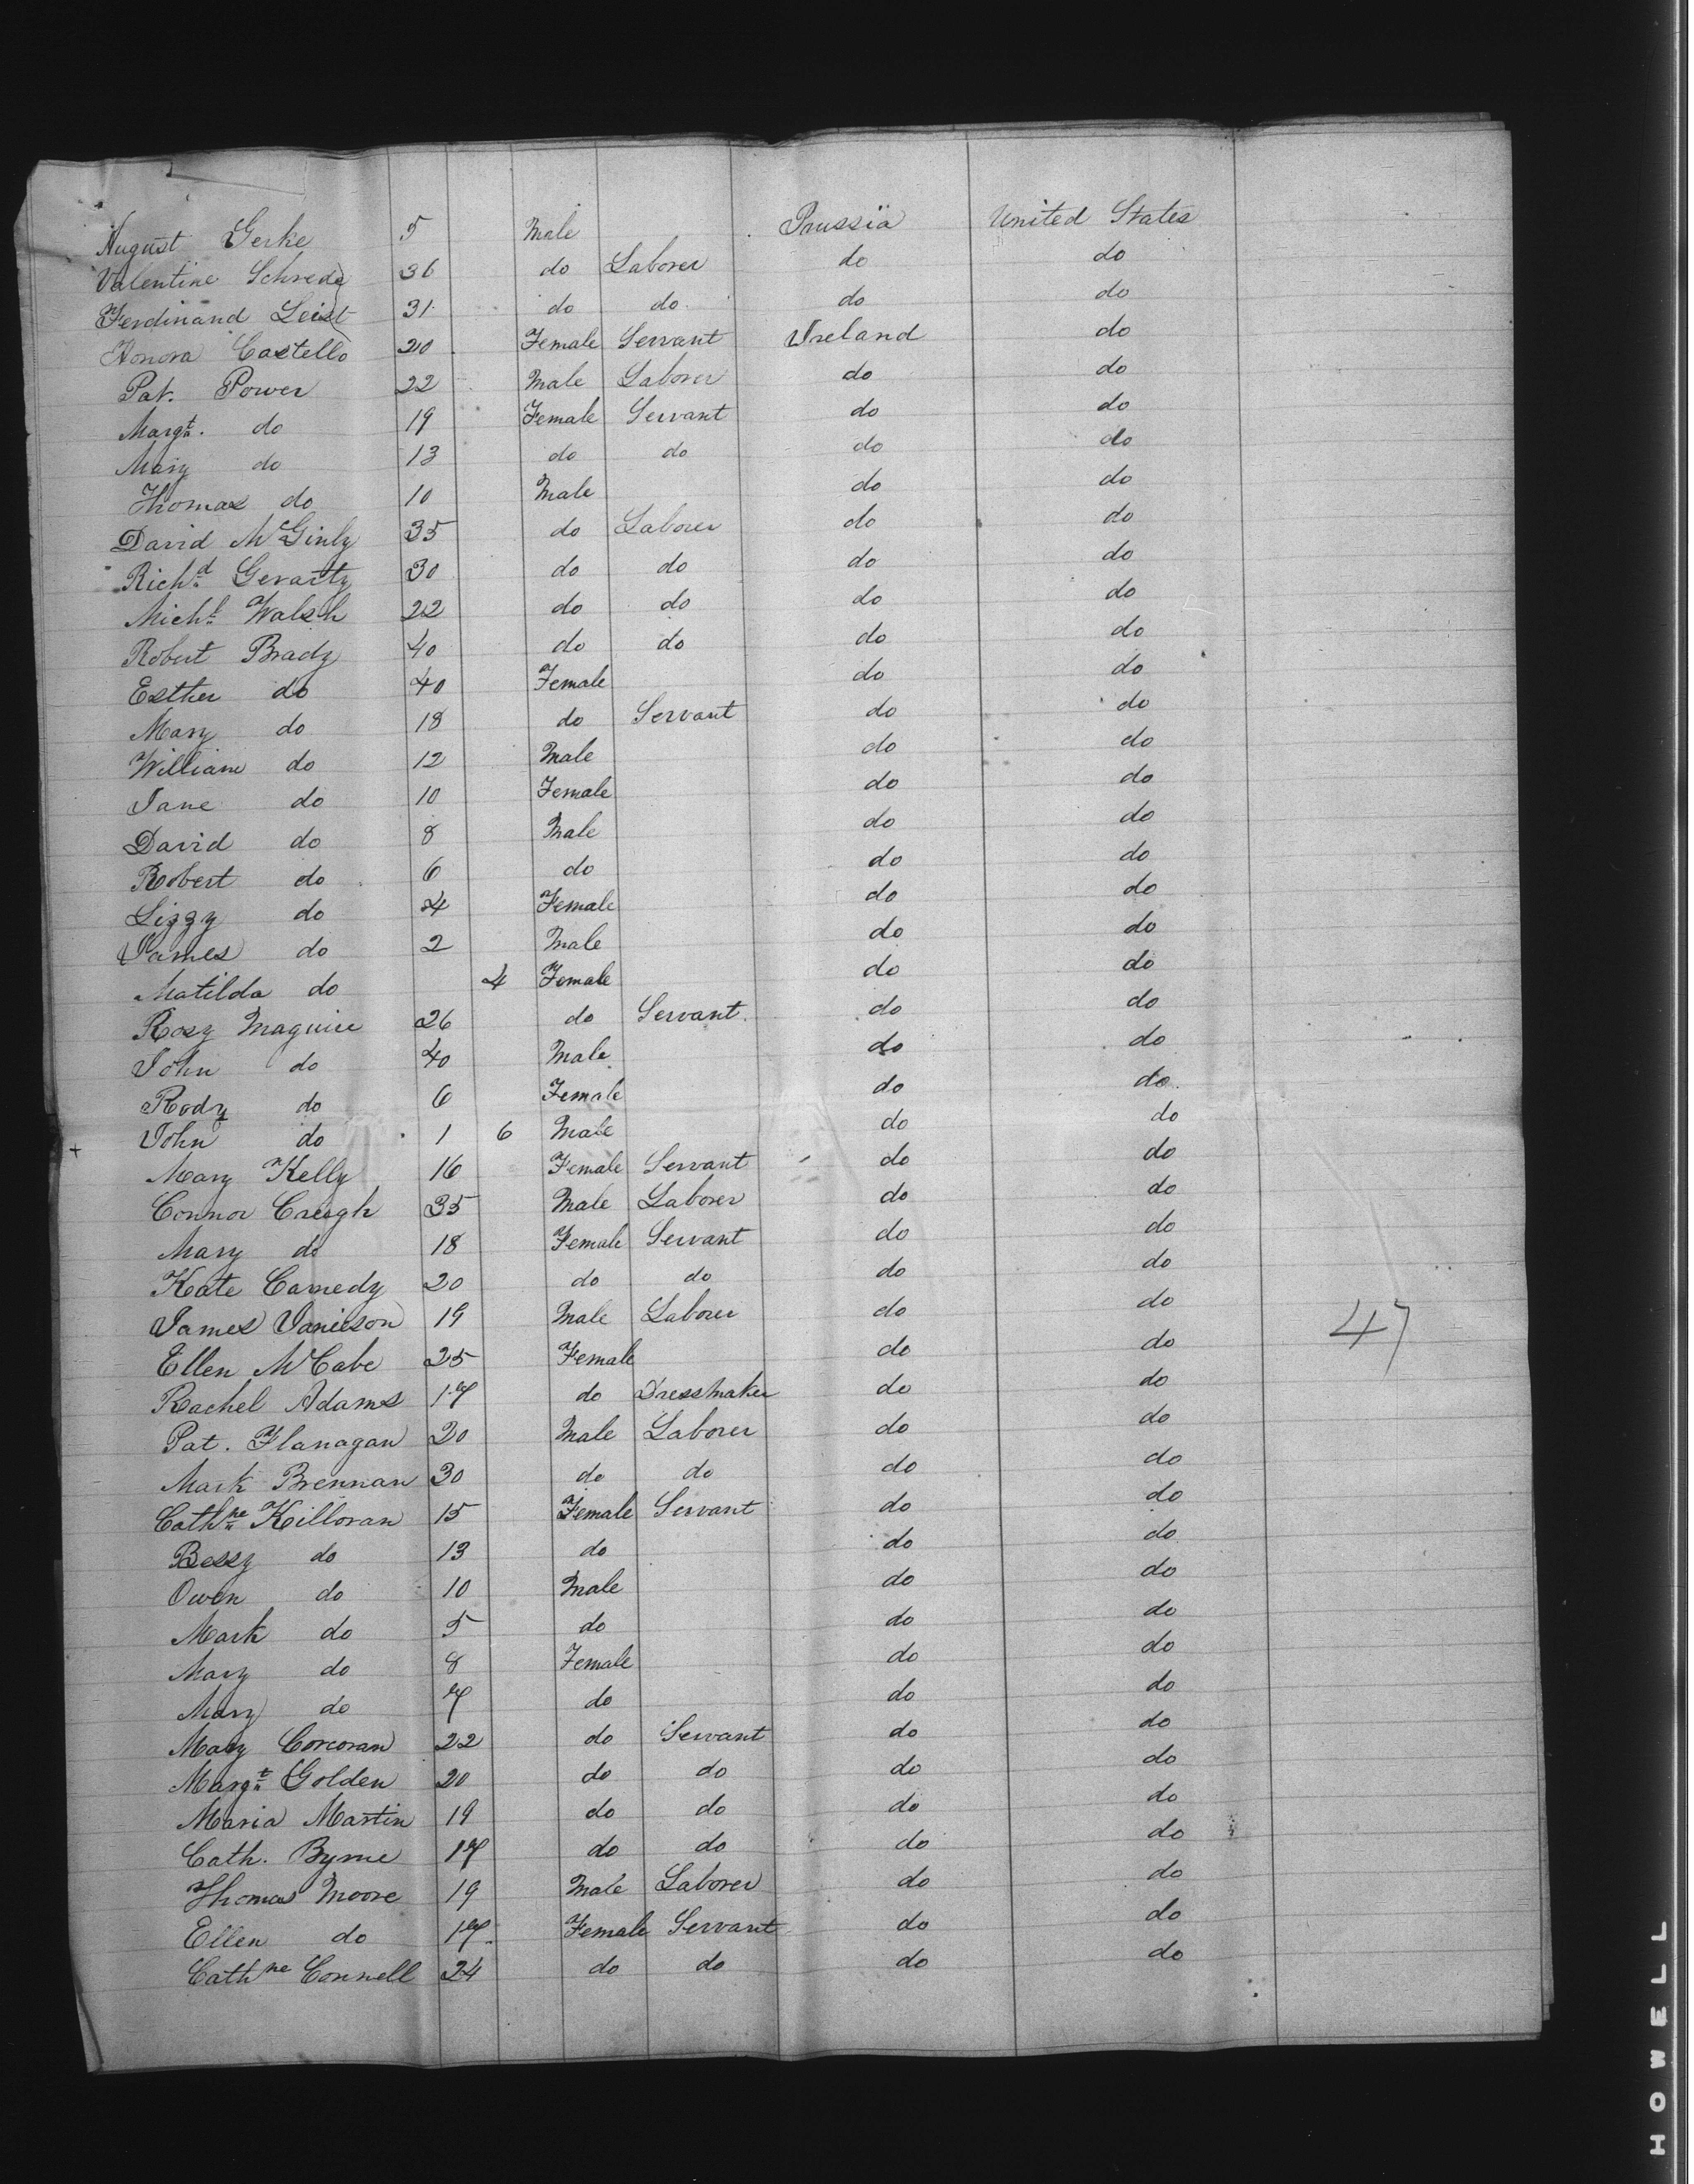 August Gerke 5 Male Prussia United States
Valentine Schrede 36 do Laborer do do
Ferdinand Leist 31 do do do do
Honora Castello 20 Female Servant Ireland do
Pat. Power 22 Male Laborer do do
Margt. do 19 Female Servant do do
Mary do 13 do do do do
Thomas do 10 Male do do
David McGinly 35 do Laborer do do
Richd Gerarty 30 do do do do
Michl Walsh 22 do do do do
Robert Brady 40 do do do do
Esther do 40 Female do do
Mary do 18 do Servant do do
William do 12 Male do do
Jane do 10 Female do do
David do 8 Male do do
Robert do 6 do do do
Lizzy do 4 Female do do
James do 2 Male do do
Matilda do 4 Female do do
Rosy Maguire 26 do Servant do do
John do 40 Male do do
Rody do 6 Female do do
+ John do 1 6 Male do do
Mary Kelly 16 Female Servant do do
Connor Creagh 35 Male Laborer do do
Mary do 18 Female Servant do do
Kate 20 do do do do
James 19 Male Laborer do do
47
Ellen McCabe 25 Female do do
Rachel Adams 17 do Dressmaker do do
Pat. Flanagan 20 Male Laborer do do
Mark Brennan 30 do do do do
Cathne Killoran 15 Female Servant do do
Bessy do 13 do do do
Owen do 10 Male do do
Mark do 5 do do do
Mary do 8 Female do do
Mary do 7 do do do
Mary Corcoran 22 do Servant do do
Margt Golden 20 do do do do
Maria Martin 19 do do do do
Cath. Byrne 17 do do do do
Thomas Moore 19 Male Laborer do do
Ellen do 17 Female Servant do do
Cathne Connell 24 do do do do
HOWELL